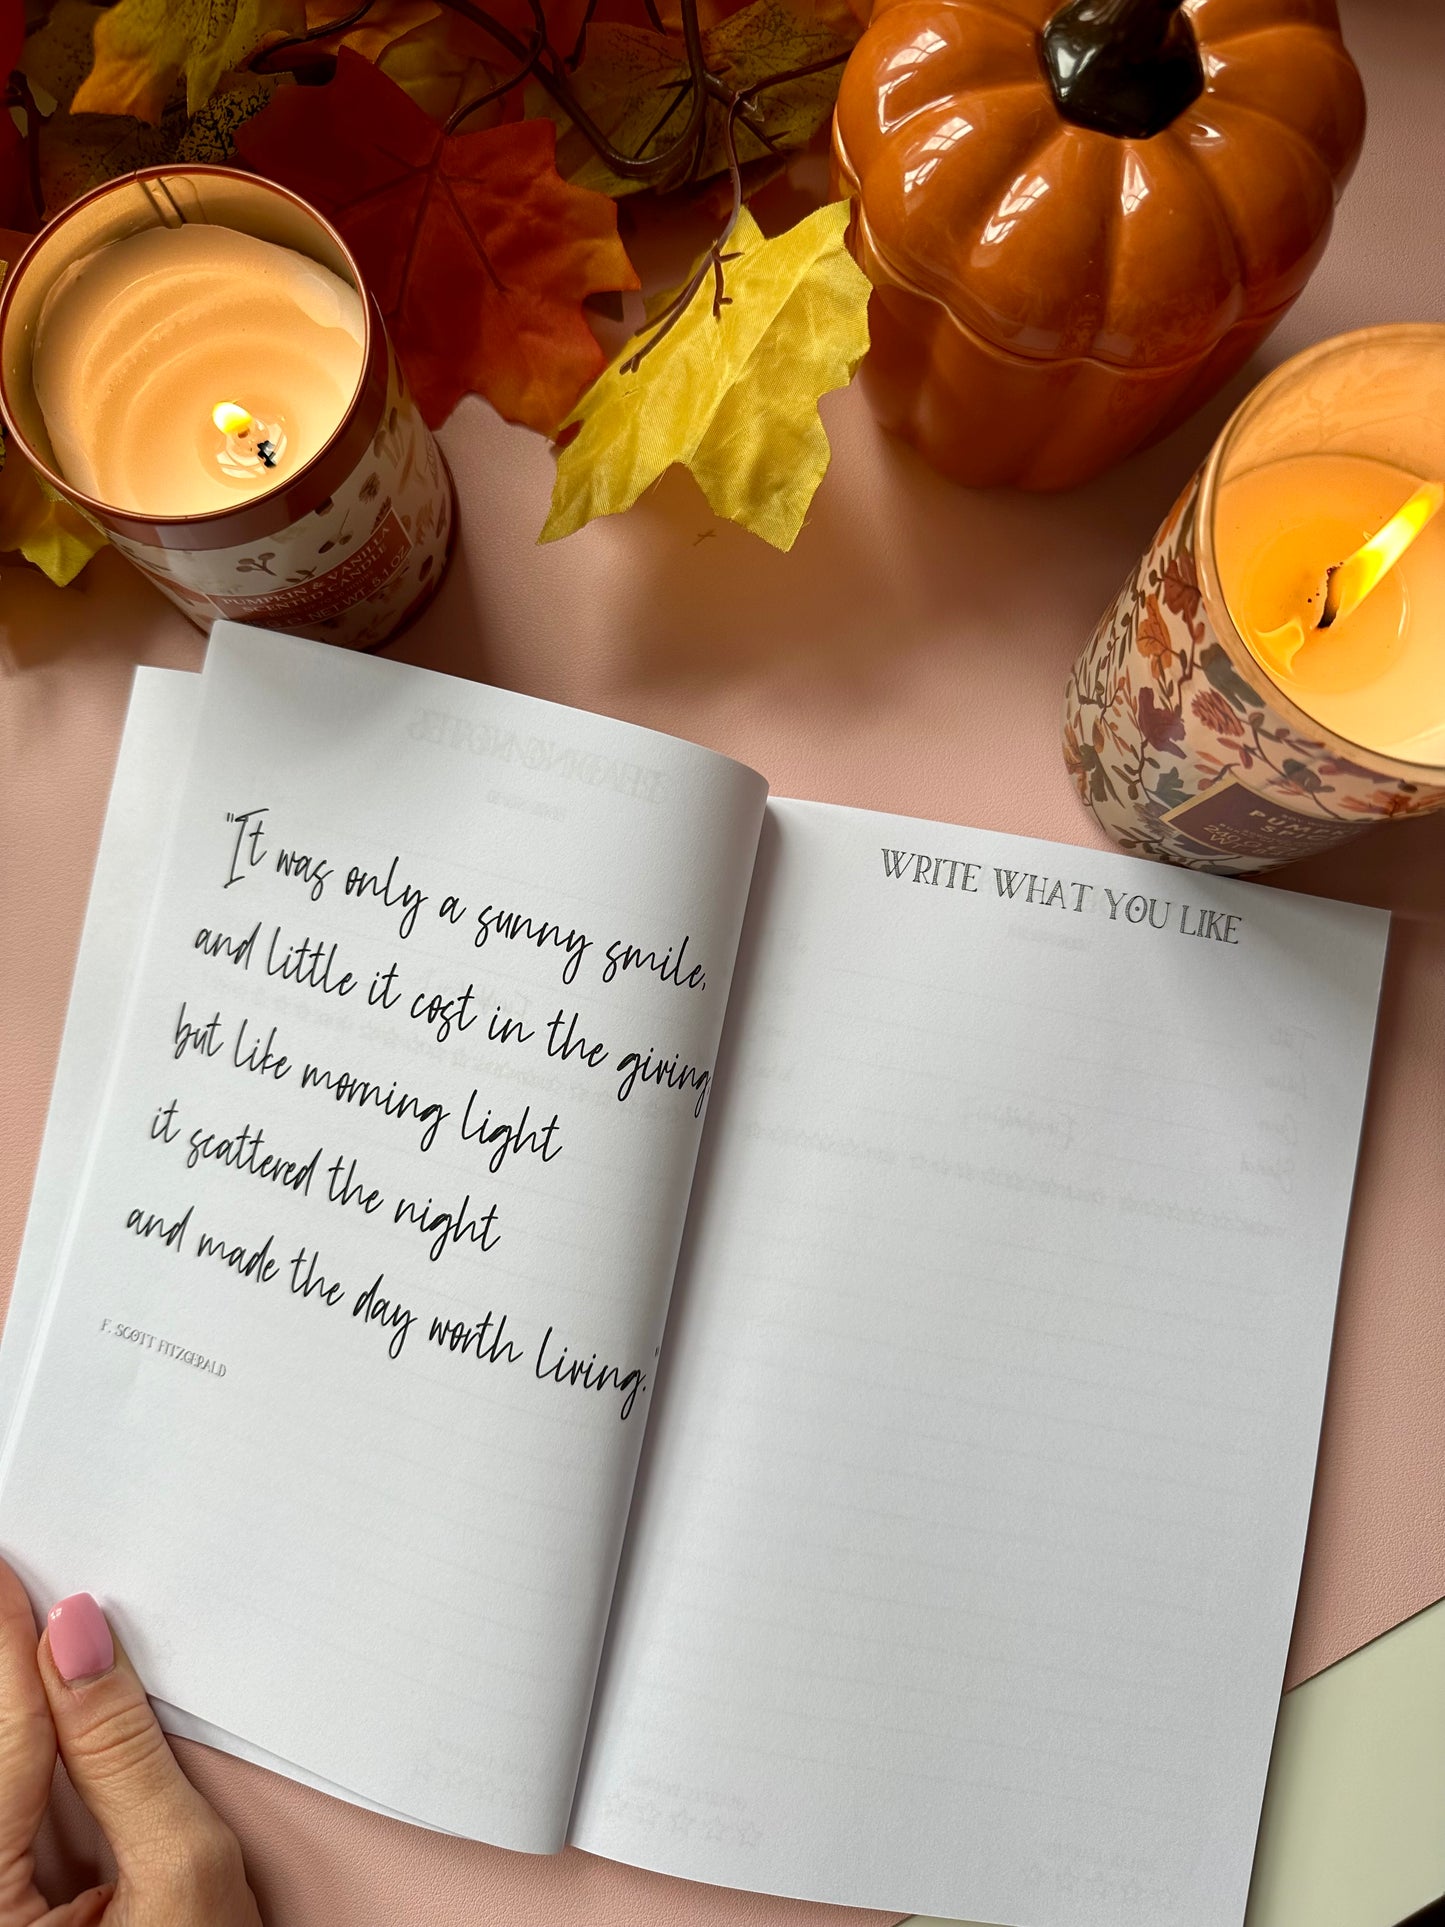 PUMPKIN & VANILLA
SCENTED CANDLE
NET WT. 5.1 OZ
"It was only a sunny smile,
and little it cost in the giving
but like morning light
it scattered the night
and made the day worth living."
F. SCOTT FITZGERALD
WRITE WHAT YOU LIKE